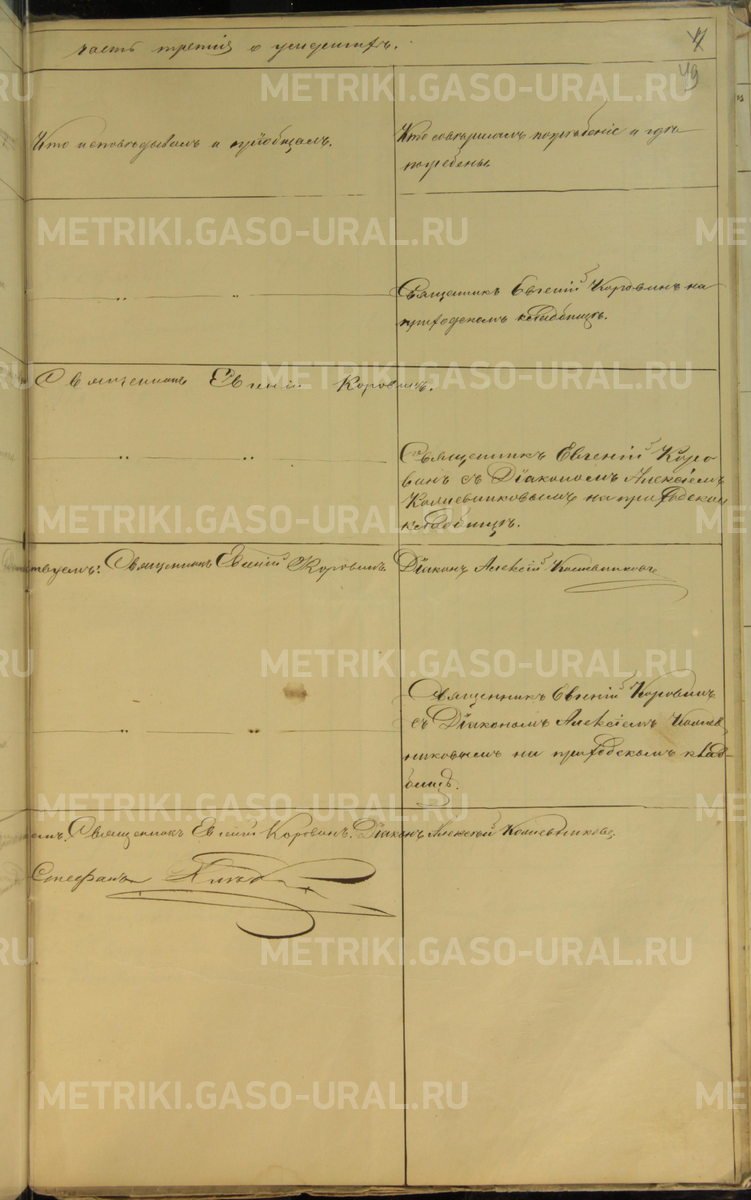 часть третія о умершихъ.
49
Кто исповѣдывалъ и пріобщалъ.
Кто совершалъ погребеніе и гдѣ
погребены.
Священникъ Евгеній Коровинъ на
приходскомъ кладбищѣ.
Священникъ Евгеній Коровинъ.
Священникъ Евгеній Коро
винъ съ Діакономъ Алексіемъ
на приходском
кладбищѣ.
Священникъ Евгеній Коровинъ
Діаконъ Алексій
Священникъ Евгеній Коровинъ
съ Діакономъ Алексіемъ
никовымъ на приходскомъ клад-
бищѣ.
Священникъ Евгеній Коровинъ. Діаконъ Алексій
Стефанъ
METRIKI.GASO-URAL.RU